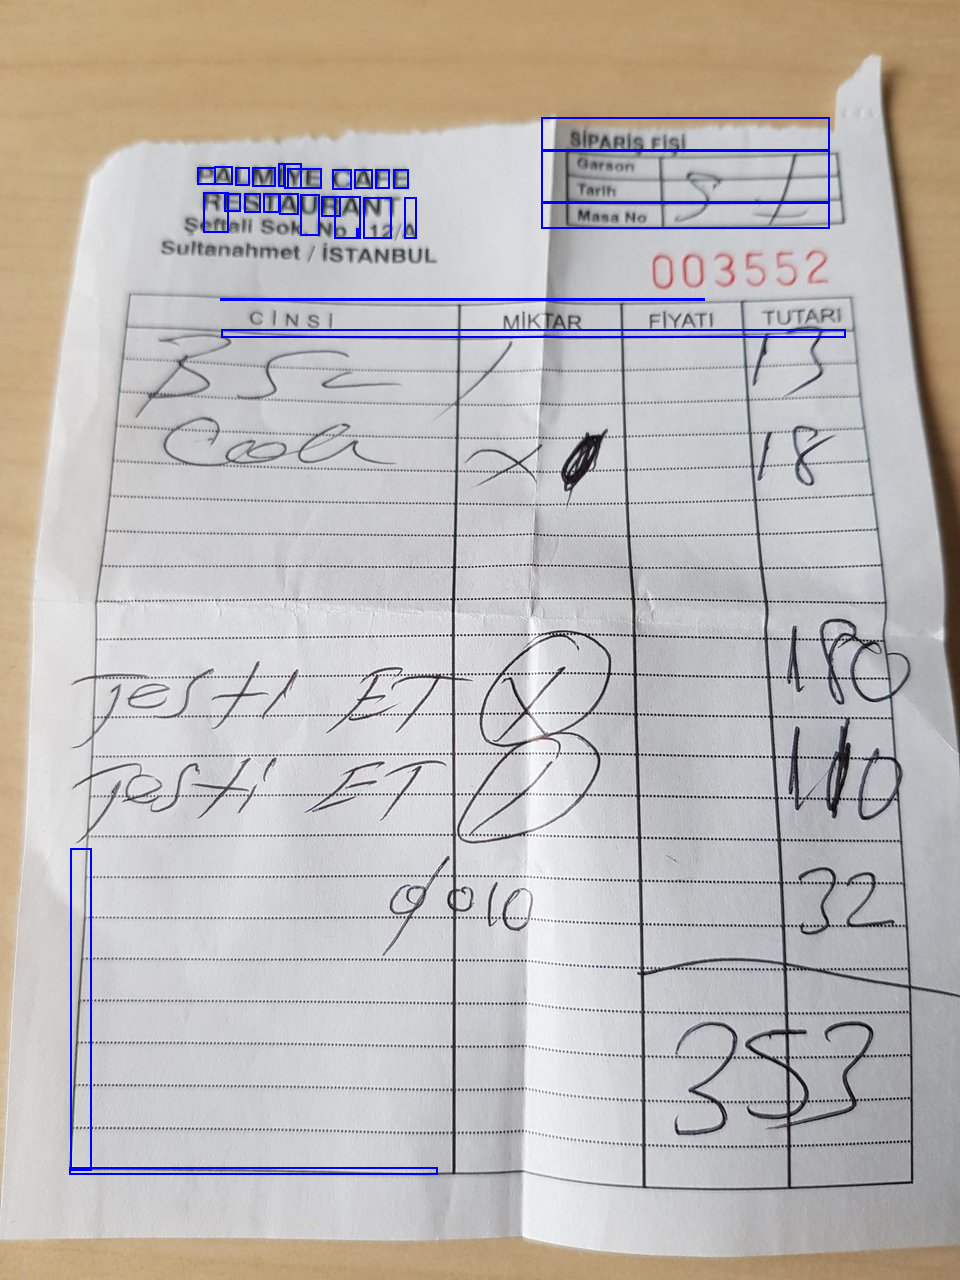 PALMİYE CAFE
RESTAURANT
Şeftali Sok. No.: 12/A
Sultanahmet / İSTANBUL
SİPARİŞ FİŞİ
Garson
Tarih
Masa No
003552
CİNSİ MİKTAR FİYATI TUTARI
BSC 1 13
Cola x 18
Testi ET 180
Testi ET 1 110
%10 32
353